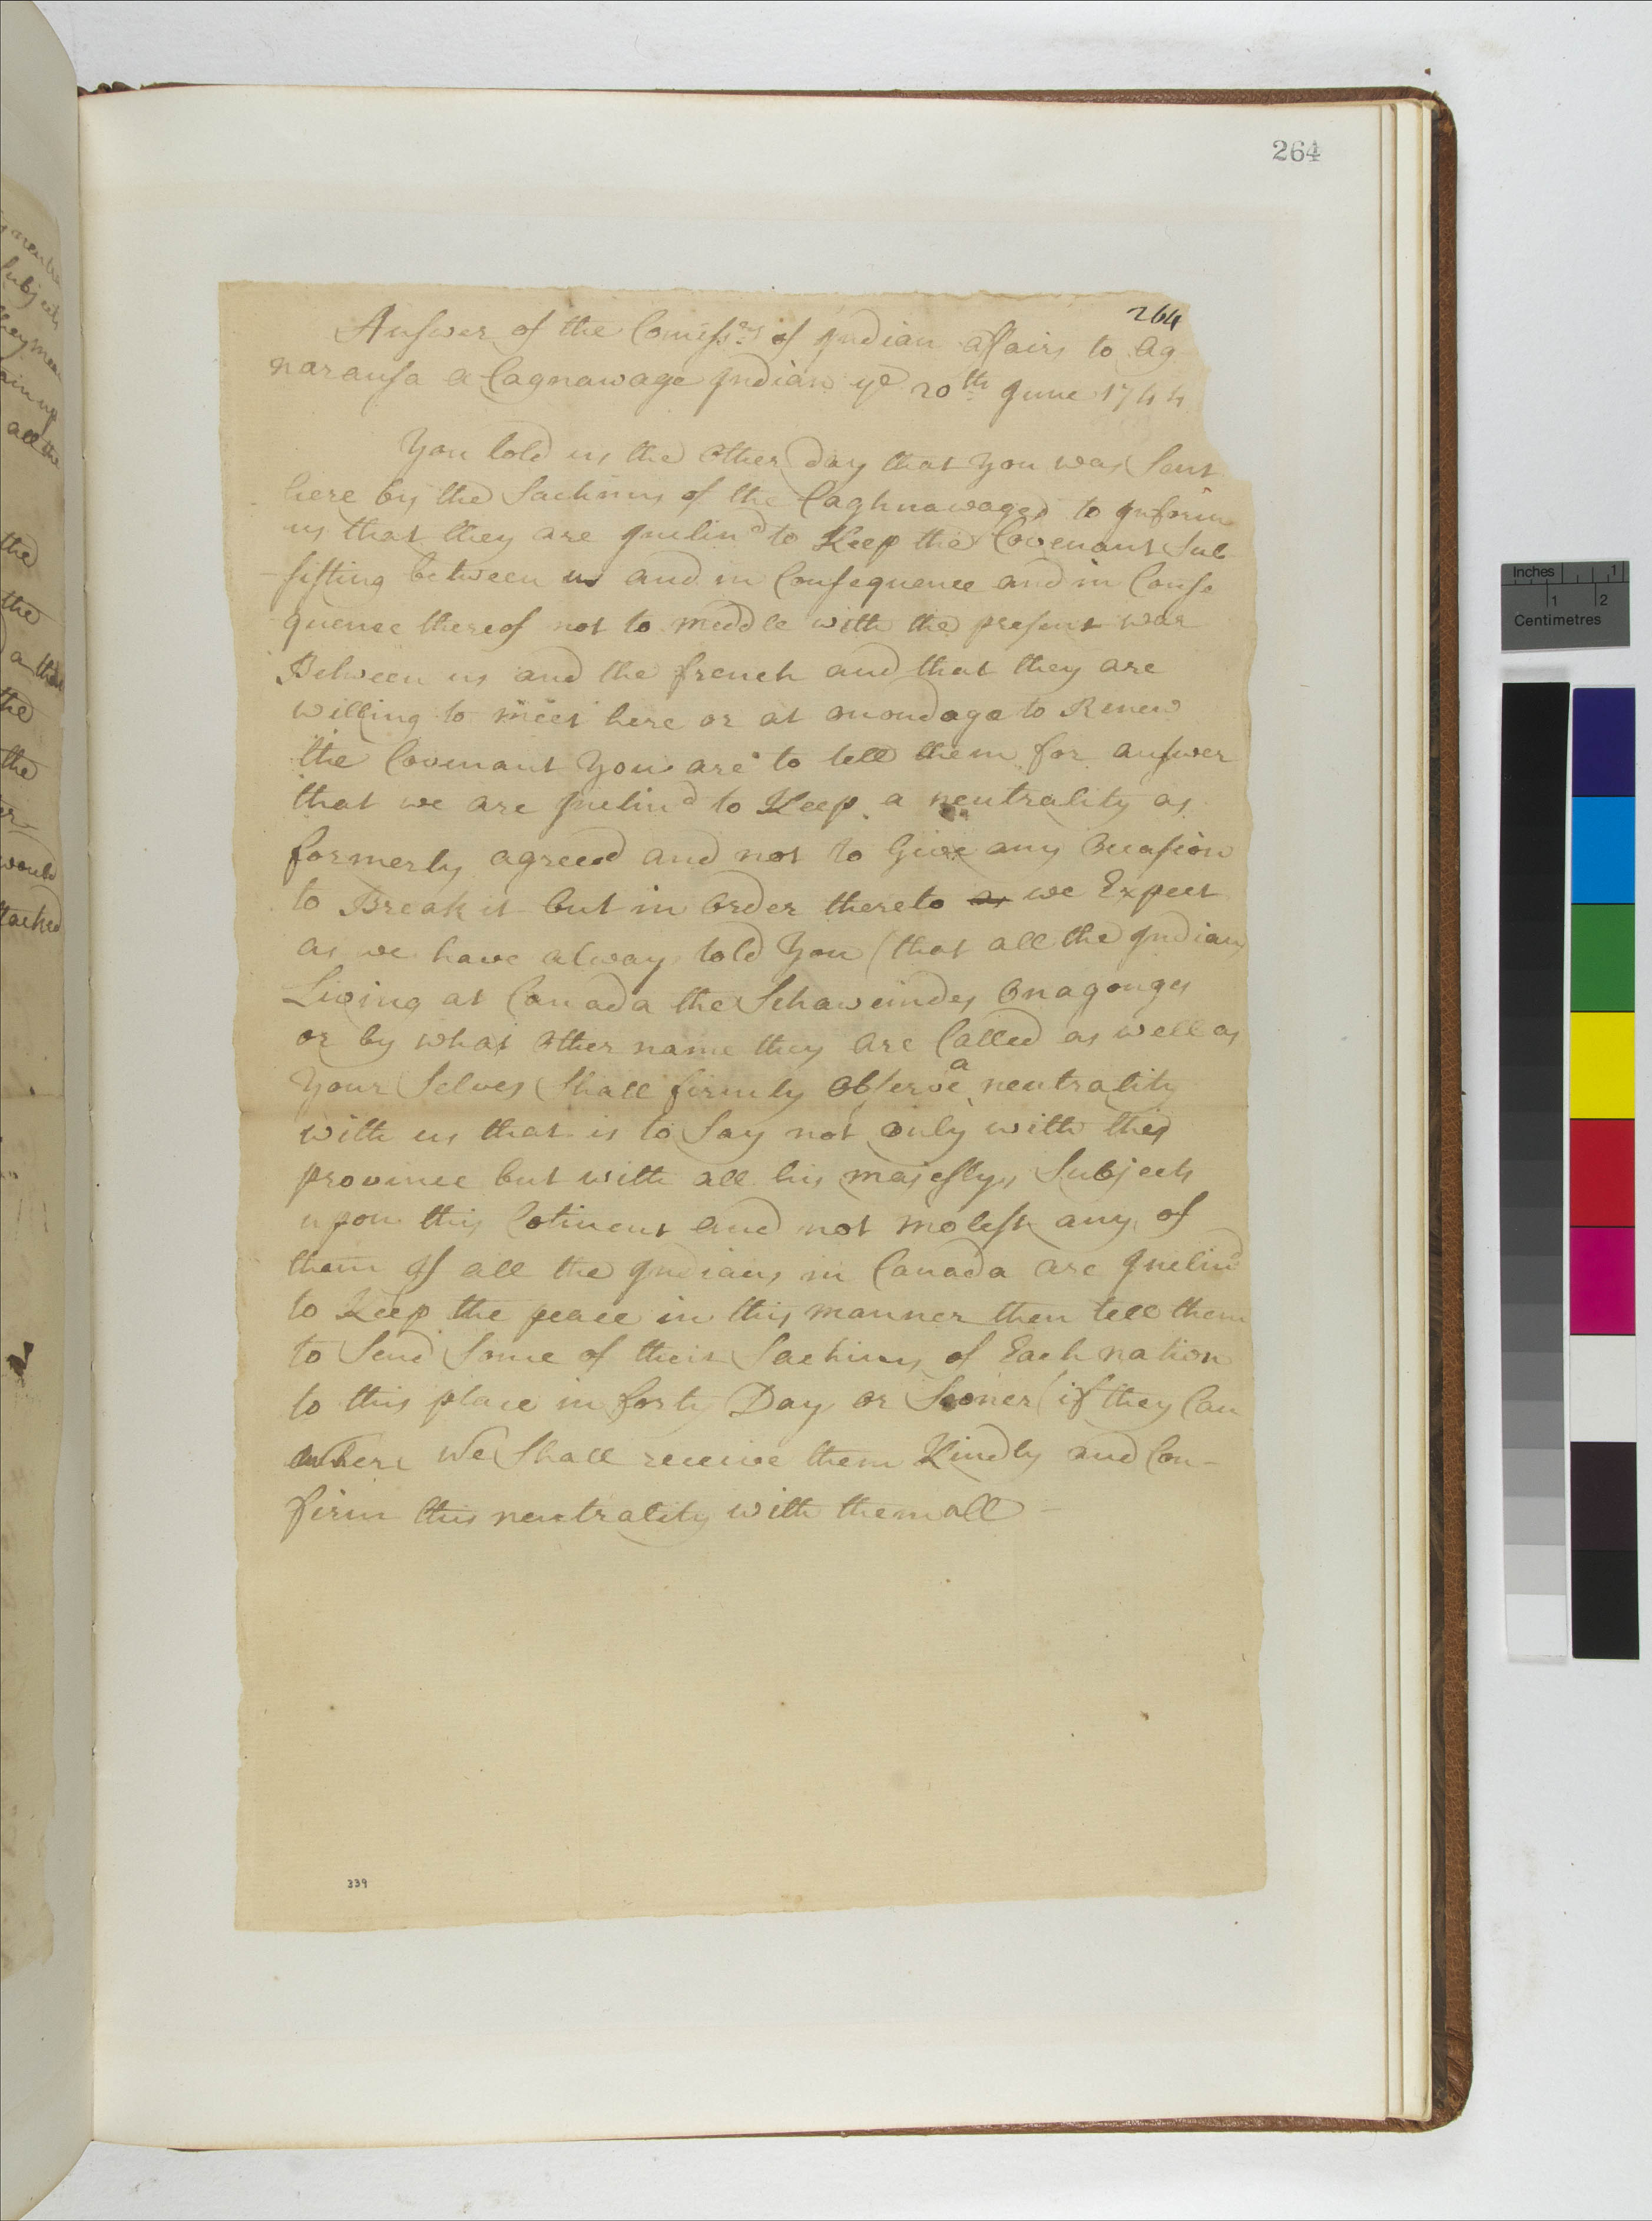 264
264
Answer of the Comiss:rs of Indian affairs to Ag
naransa a Cagnawage Indian ye 20th June 1744
You told us the Other day that You was Sent
here by the Sachims of the Caghnawages to Inform
us that they are Inclind to Keep the Covenant Sub
sisting between us and in Consequence and in Conse
quence thereof not to meddle with the present war
Between us and the french and that they are
willing to meet here or at onondage to Renew
the Covenant You are to tell them for answer
that we are Inclind to Keep a neutrality as
formerly agreed and not to Give any Occasion
to Break it but in Order thereto as we Expect
as we have alway told You (that all the Indians
Living at Canada the Schaweindes Onagonges
or by what Other name they are Called as well as
Your Selves Shall firmly Observe a neutrality
with us that is to Say not only with this
province but with all his majestys Subjects
upon this Cotinent and not molest any of
them If all the Indians in Canada are Inclind
to Keep the peace in this manner then tell them
to Send Some of their Sachims of Each nation
to this place in forty Days or Sooner (if they Can
where We Shall receive them Kindly and Con-
firm this neutrality with them all -
339
neutra
Subjects
they mean
all the
the
the
a than
the
the
would
tached
Inches 1
1 2
Centimetres